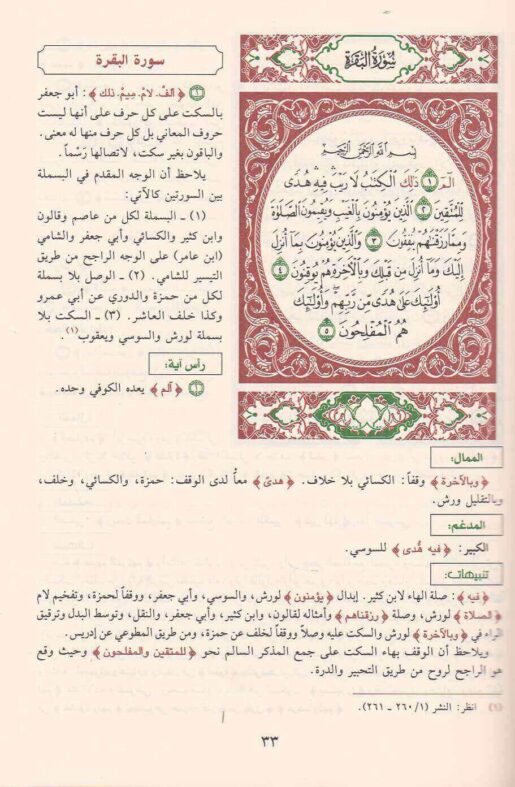 سورة البقرة
﴿ألفْ. لامْ. مِيمْ. ذلك﴾ : أبو جعفر
بالسكت على كل حرف على أنها ليست
حروف المعاني بل كل حرف منها له معنى.
والباقون بغير سكت، لاتصالها رَسْماً.
يلاحظ أن الوجه المقدم في البسملة
بين السورتين كالآتي:
(١) ـ البسملة لكل من عاصم وقالون
وابن كثير والكسائي وأبي جعفر والشامي
(ابن عامر) على الوجه الراجح من طريق
التيسير للشامي. (٢) ـ الوصل بلا بسملة
لكل من حمزة والدوري عن أبي عمرو
وكذا خلف العاشر. (٣) ـ السكت بلا
بسملة لورش والسوسي ويعقوب(١).
رأس آية:
١ ﴿آلم﴾ يعده الكوفي وحده.
سُورَةُ البَقَرَةِ
بِسْمِ اللَّهِ الرَّحْمَٰنِ الرَّحِيمِ
الٓمٓ ١ ذَٰلِكَ الْكِتَابُ لَا رَيْبَ فِيهِ هُدًى
لِّلْمُتَّقِينَ ٢ الَّذِينَ يُؤْمِنُونَ بِالْغَيْبِ وَيُقِيمُونَ الصَّلَوٰةَ
وَمِمَّا رَزَقْنَاهُمْ يُنفِقُونَ ٣ وَالَّذِينَ يُؤْمِنُونَ بِمَا أُنزِلَ
إِلَيْكَ وَمَا أُنزِلَ مِن قَبْلِكَ وَبِالْآخِرَةِ هُمْ يُوقِنُونَ ٤
أُولَٰئِكَ عَلَىٰ هُدًى مِّن رَّبِّهِمْ وَأُولَٰئِكَ
هُمُ الْمُفْلِحُونَ ٥
الممال:
﴿وبالآخرة﴾ وقفاً: الكسائي بلا خلاف. ﴿هدىً﴾ معاً لدى الوقف: حمزة، والكسائي، وخلف،
وبالتقليل ورش.
المدغم:
الكبير: ﴿فيه هُدى﴾ للسوسي.
تنبيهات:
﴿فيه﴾ : صلة الهاء لابن كثير. إبدال ﴿يؤمنون﴾ لورش، والسوسي، وأبي جعفر، ووقفاً لحمزة، وتفخيم لام
﴿الصلاة﴾ لورش، وصلة ﴿رزقناهم﴾ وأمثاله لقالون، وابن كثير، وأبي جعفر، والنقل، وتوسط البدل وترقيق
الراء في ﴿وبالآخرة﴾ لورش والسكت عليه وصلاً ووقفاً لخلف عن حمزة، ومن طريق المطوعي عن إدريس.
ويلاحظ أن الوقف بهاء السكت على جمع المذكر السالم نحو ﴿للمتقين والمفلحون﴾ وحيث وقع
هو الراجح لروح من طريق التحبير والدرة.
(١) انظر: النشر (١/ ٢٦٠ ـ ٢٦١).
٣٣